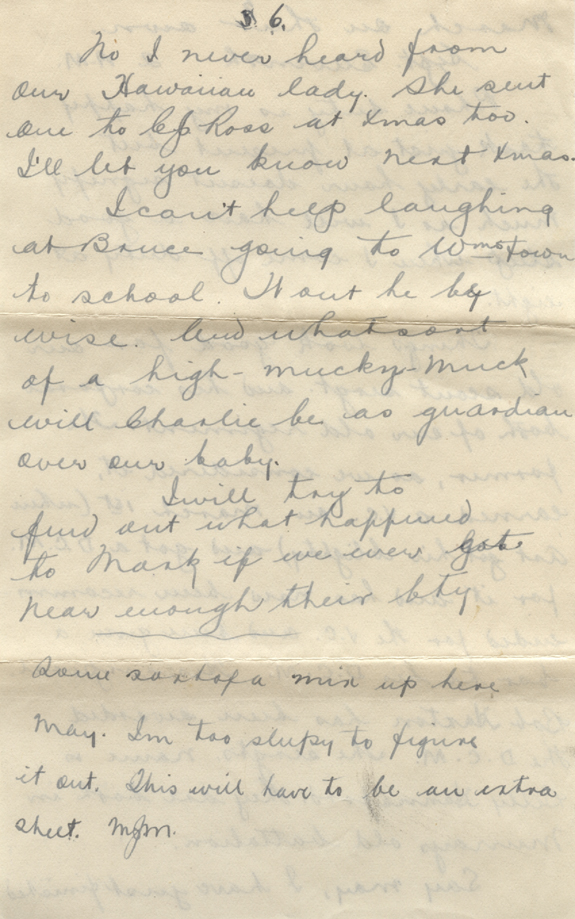 3 6.
No I never heard from
our Hawaiian lady. She sent
one to C Ross at Xmas too.
I'll let you know next Xmas.
I can't help laughing
at Bruce going to Wmstown
to school. Wont he be
wise. And what sort
of a high-mucky-muck
will Charlie be as guardian
over our baby.
I will try to
find out what happened
to Mark if we ever got
near enough their bty.
Some sort of a mix up here
May. Im too sleepy to figure
it out. This will have to be an extra
sheet. MJM.